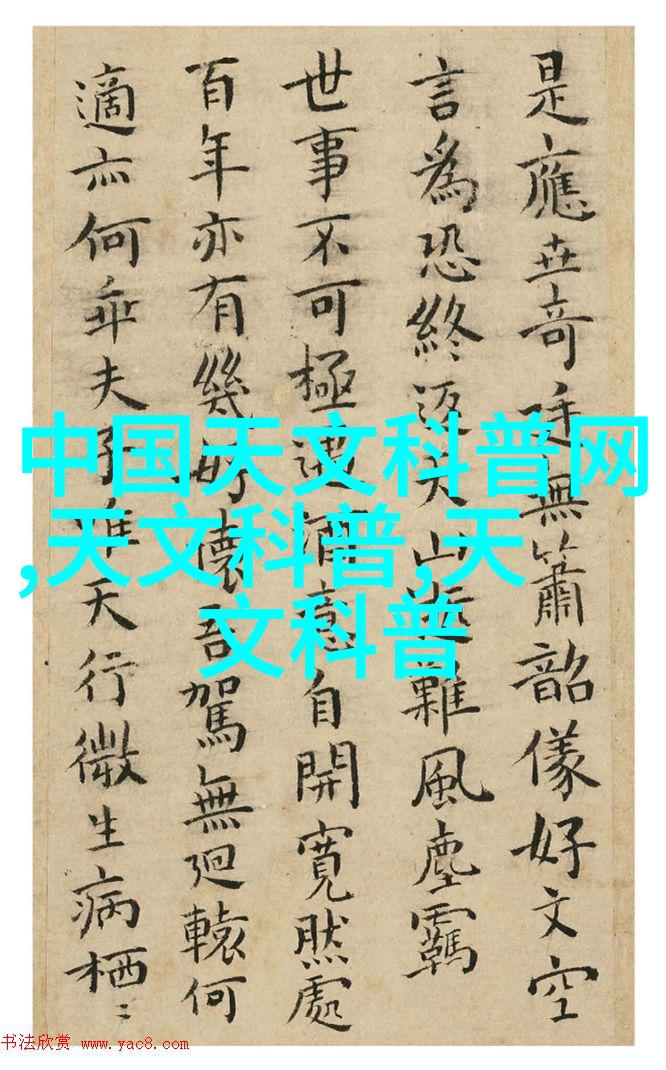 是應世奇
無簫韶儀好文空
言為恐終
難風塵羈
世事不可極
意自開寬然處
百年亦有幾
懷吾駕無迴轅何
適亦何
夫
天行微生病栖〻
中国天文科普网
,天文科普,天
文科普
书法欣赏 www.yac8.com